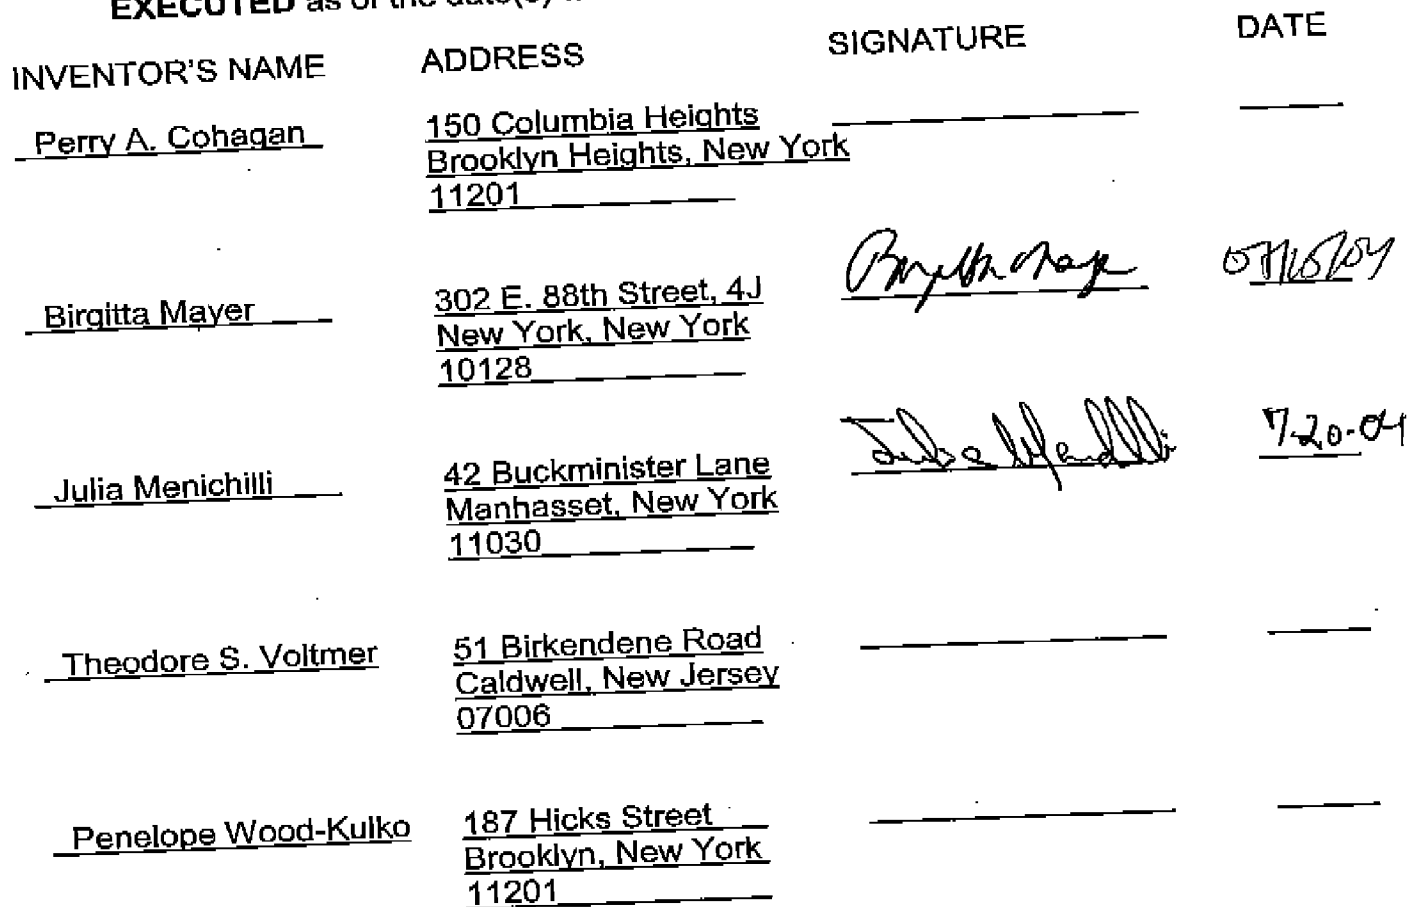 EXECUTED as of the date(s)
INVENTOR'S NAME ADDRESS SIGNATURE DATE
Perry A. Cohagan 150 Columbia Heights
Brooklyn Heights, New York
11201
Birgitta Mayer 302 E. 88th Street, 4J
New York, New York
10128
Julia Menichilli 42 Buckminister Lane 7-20-04
Manhasset, New York
11030
Theodore S. Voltmer 51 Birkendene Road
Caldwell, New Jersey
07006
Penelope Wood-Kulko 187 Hicks Street
Brooklyn, New York
11201